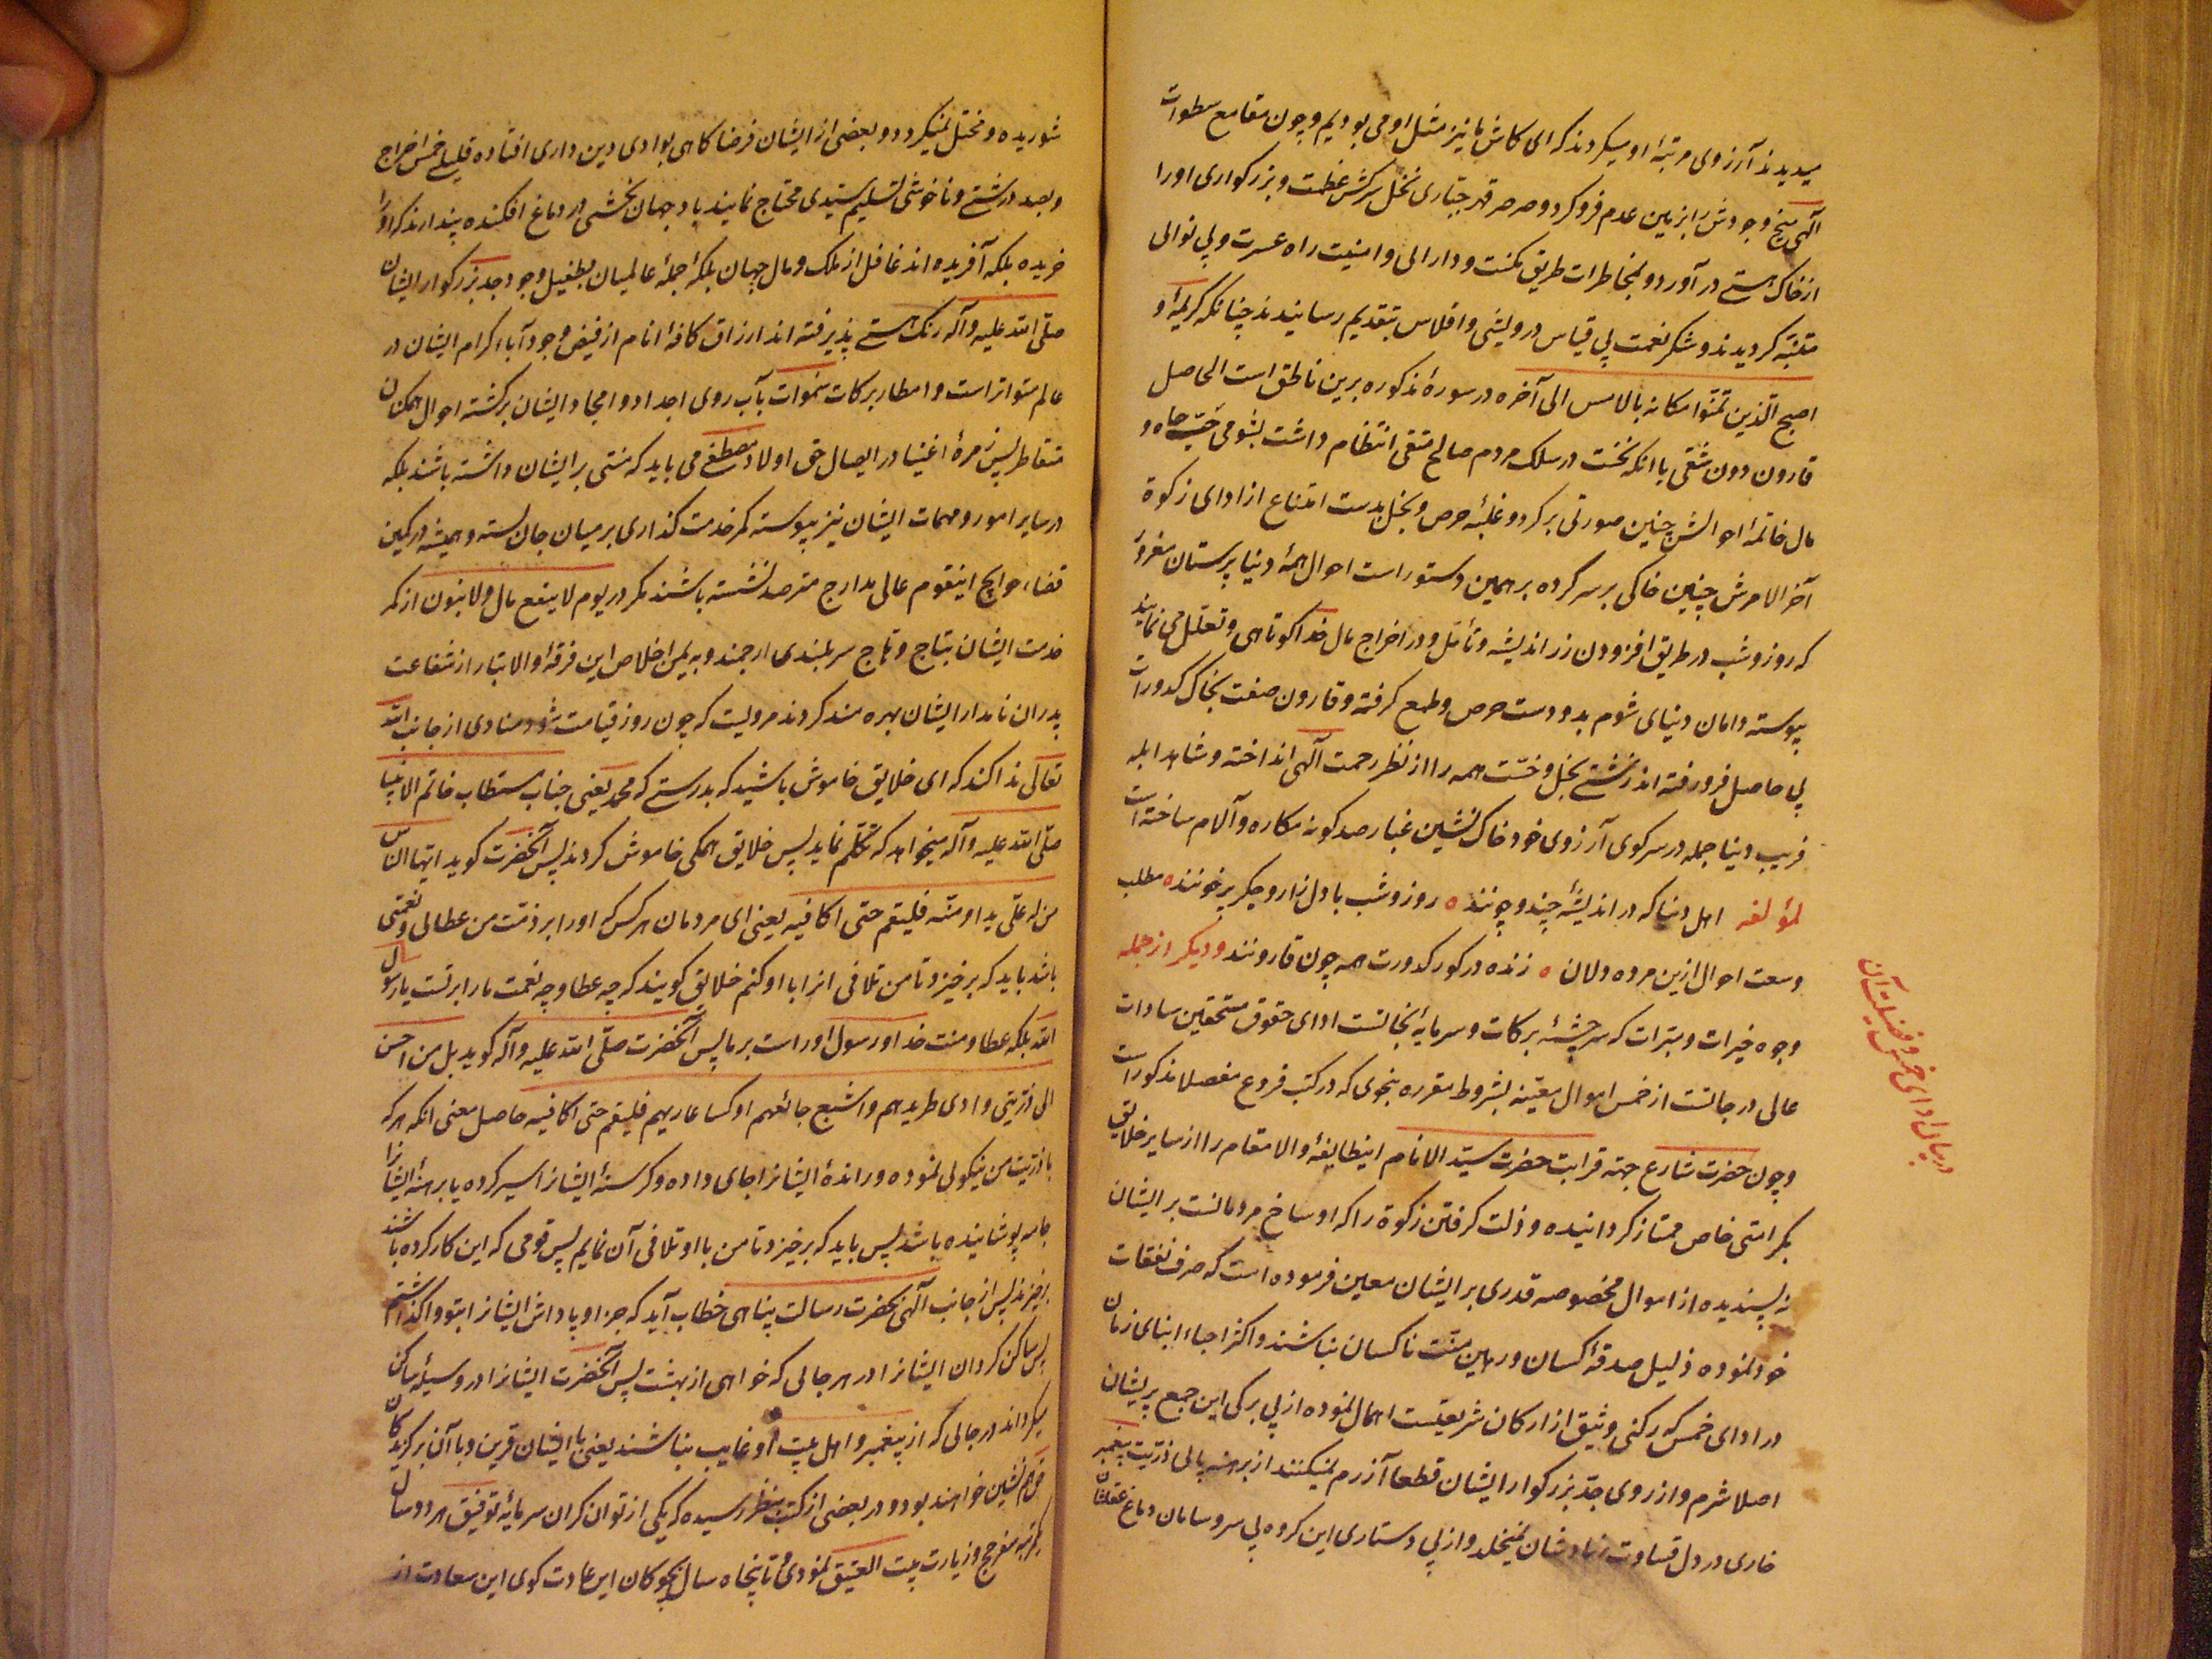 میدیدند آرزوی مرتبهٔ او میکردند که ای کاش ما نیز مثل او می بودیم و چون مقامع سطوات
آلهی میخ وجودش را بزمین عدم فرو کرد و صرصر قهر جباری نخل سرکش عظمت و بزرکواری او را
از خاک هستی در آورد و بمخاطرات طریق مکنت و دارائی و امنیت راه عسرت و بی نوائی
متنبه کردیدند و شکر نعمت بی قیاس درویشی و افلاس بتقدیم رسانیدند چنانکه کریمهٔ و
اصبح الذین تمنوا مکانه بالامس الی آخره در سورهٔ مذکوره برین ناطق است الحاصل
قارون دون شقی با انکه نخست در سلک مردم صالح متقی انتظام داشت بشومی حب جاه و
مال خاتمهٔ احوالش چنین صورتی بر کرد و غلبهٔ حرص و بخل بدست امتناع از ادای زکوة
آخر الامرش چنین خاکی بر سر کرده بر همین دستور است احوال همهٔ دنیا پرستان مغرور
که روز و شب در طریق افزودن زر اندیشه و تأمل و در اخراج مال خدا کوتاهی و تعلل می نمایند
پیوسته دامان دنیای شوم بدو دست حرص و طمع کرفته و قارون صفت بخاک کدورات
بی حاصل فرو رفته اند زشتی بخل و خست همه را از نظر رحمت آلهی انداخته و شاهد ابله
فریب دنیا جمله در سر کوی آرزوی خود خاک نشین غبار صد کونه مکاره و آلام ساخته است
لمؤلفه اهل دنیا که در اندیشهٔ چند و چونند ٥ روز و شب با دل زار و جکر پر خونند ٥ مطلب
وسعت احوال ازین مرده دلان ٥ زنده در کور کدورت همه چون قارونند و دیکر از جمله
وجوه خیرات و مبرات که سرچشمهٔ برکات و سرمایهٔ نجاتست ادای حقوق مستحقین سادات
عالی درجاتست از خمس اموال معینه بشروط مقرره بنحوی که در کتب فروع مفصلا مذکور است
و چون حضرت شارع جهة قرابت حضرت سید الانام اینطایفهٔ والا مقام را از سایر خلایق
بکرامتی خاص ممتاز کردانیده و ذلت کرفتن زکوة را که اوساخ مردمانست بر ایشان
نه پسندیده از اموال مخصوصه قدری بر ایشان معین فرموده است که صرف نفقات
خود نموده ذلیل صدقهٔ کسان و رهین منت ناکسان نباشند و اکثر ابنای زمان
در ادای خمس که رکنی وثیق از ارکان شریعتست اهمال نموده از بی برکی این جمع پریشان
اصلا شرم و از روی جد بزرکوار ایشان قطعا آزرم نمیکنند از برهنه پائی ذریت پیغمبر
خاری در دل قساوت شان نمیخلد و از بی دستاری این کروه بی سر و سامان دماغ
در بیان ادای خمس و فضیلت آن
شوریده و مختل نمیکردد و بعضی از ایشان فرضا کاهی بوادی دین داری افتاده قلیلی خمس اخراج
و بصد درشتی و ناخوشی تسلیم سیدی محتاج نمایند باد جهان بخشی در دماغ افکنده پندارند که او را
خریده بلکه آفریده اند غافل از ملک و مال جهان بلکهٔ جملهٔ عالمیان بطفیل وجود جد بزرکوار ایشان
صلی الله علیه و آله رنک هستی پذیرفته اند ارزاق کافهٔ انام از فیض وجود آباء کرام ایشان در
عالم متواتر است و امطار برکات سموات بآب روی اجداد و امجاد ایشان بر کشته احوال همکنان
متقاطر پس زمرهٔ اغنیا در ایصال حق اولاد مصطفی می باید که منتی بر ایشان نداشته باشند بلکه
در سایر امور و مهمات ایشان نیز پیوسته کمر خدمت کذاری بر میان جان بسته و همیشه در کمین
قضاء حوایج اینقوم عالی مدارج مترصد نشسته باشند مکر در یوم لا ینفع مال و لا بنون از کمر
خدمت ایشان بتاج و تاج سربلندی ارجمند و به یمن اخلاص این فرقهٔ والا تبار از شفاعت
پدران نامدار ایشان بهره مند کردند مرویست که چون روز قیامت شود منادی از جانب الله
تعالی ندا کند که ای خلایق خاموش باشید که بدرستی که محمد یعنی جناب مستطاب خاتم الانبیا
صلی الله علیه و آله میخواهد که تکلم نماید پس خلایق همکی خاموش کردند پس آنحضرت کوید ایها الناس
من له علی ید او منه فلیقم حتی اکافیه یعنی ای مردمان هر کس که او را بر ذمت من عطائی و نعمتی
باشد باید که برخیزد تا من تلافی انرا با او کنم خلایق کویند که چه عطا و چه نعمت ما را بر تست یا رسول
الله بلکه عطا و منت خدا و رسول او راست بر ما پس آنحضرت صلی الله علیه و آله کوید بل من احسن
الی ذریتی و اوی طریدهم و اشبع جائعهم او کسا عاریهم فلیقم حتی اکافیه حاصل معنی انکه هر که
با ذریت من نیکوئی نموده و راندهٔ ایشانرا جای داده و کرسنهٔ ایشانرا سیر کرده یا برهنهٔ ایشانرا
جامه پوشانیده باشد پس باید که برخیزد تا من با او تلافی آن نمایم پس قومی که این کار کرده باشند
برخیزند پس از جانب آلهی بحضرت رسالت پناهی خطاب آید که جزا و پاداش ایشانرا بتو واکذاشتم
پس ساکن کردان ایشانرا در هر جائی که خواهی از بهشت پس آنحضرت ایشانرا در وسیله ساکن
میکرداند در جائی که از پیغمبر و اهل بیت او غایب نباشند یعنی با ایشان قرین و با آن برکزیدکان
حق همنشین خواهند بود و در بعضی از کتب بنظر رسیده که یکی از توانکران سرمایهٔ توفیق هر دو سال
یکمرتبه سفر حج و زیارت بیت العتیق نمودی و تا پنجاه سال بچوکان این عادت کوی این سعادت از